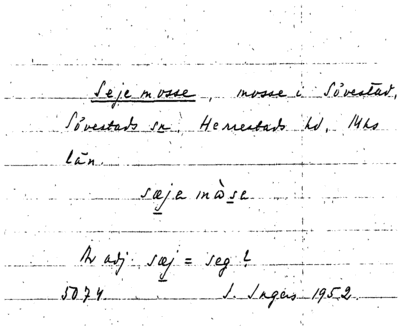 Seje mosse, mosse i Sövestad,
Sövestads sn, Herrestads hd, Mhs
län.
sæje måse
Av adj. sæj = seg?
5074. S. Ingers 1952